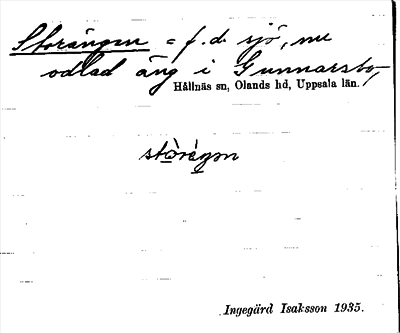 Storängen = f. d. sjö, nu
odlad äng i Gunnarsbo,
Hållnäs sn, Olands hd, Uppsala län.
Ingegärd Isaksson 1935.